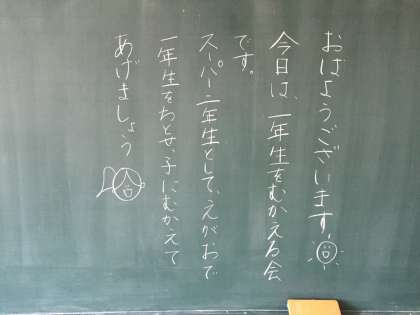 おはようございます。
今日は、一年生をむかえる会
です。
スーパー二年生として、えがおで
一年生をちとせっ子にむかえて
あげましょう